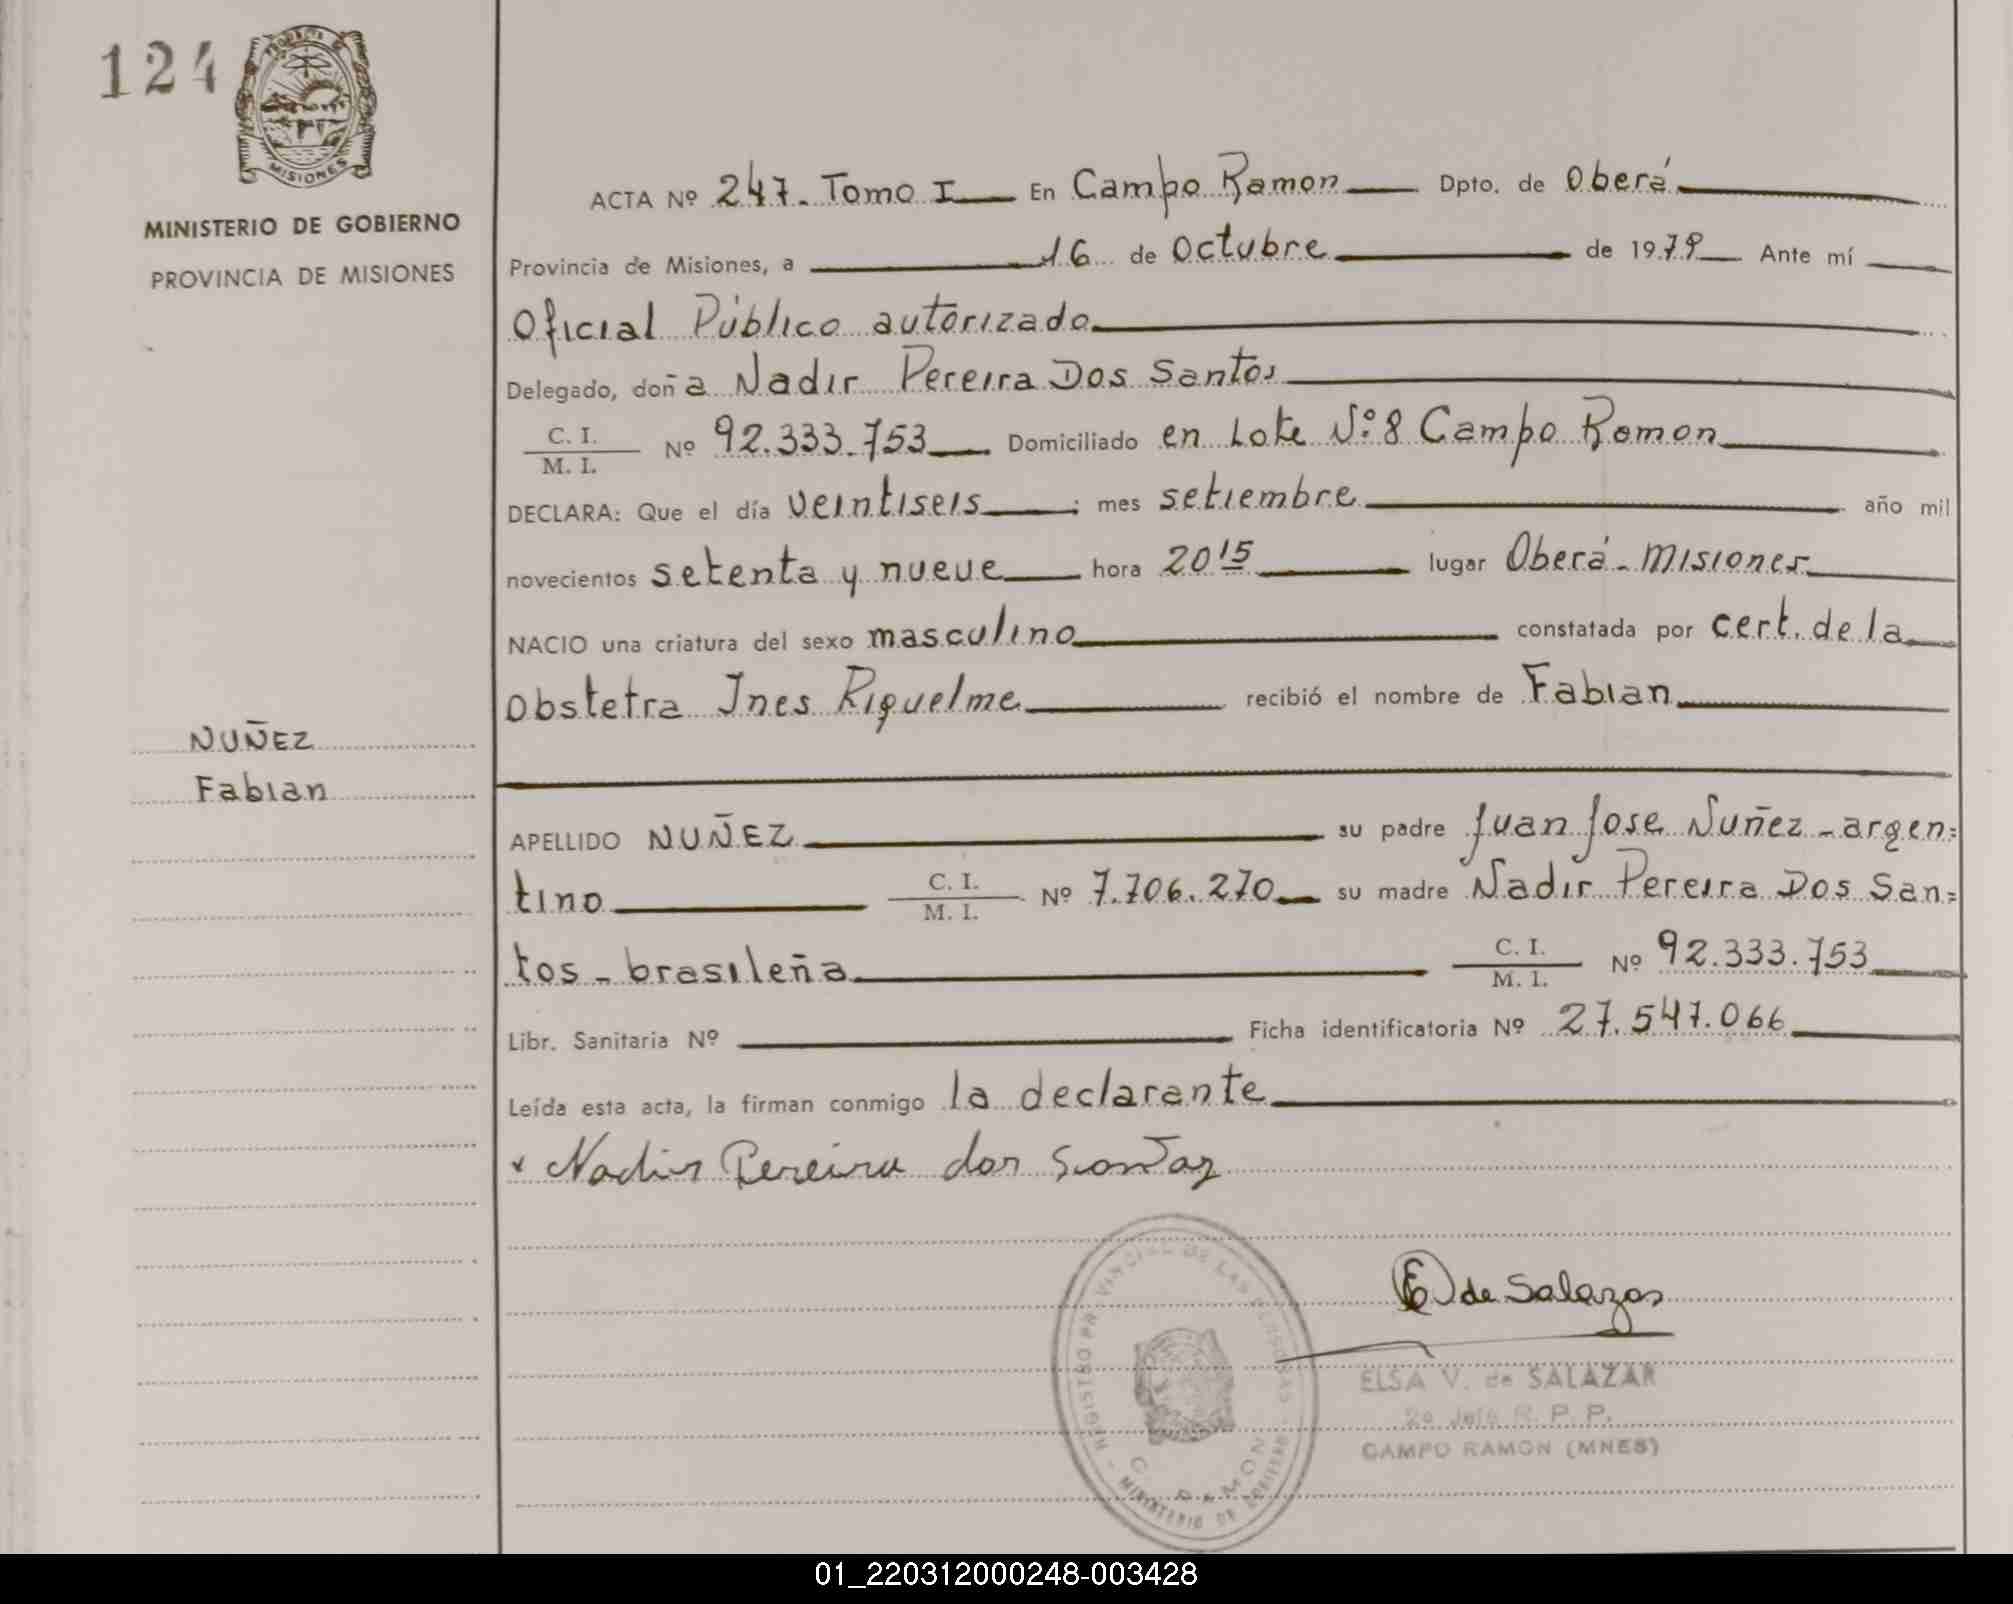 124
PROVINCIA DE
MISIONES
MINISTERIO DE GOBIERNO
PROVINCIA DE MISIONES
ACTA Nº 247. Tomo I En Campo Ramon Dpto. de Oberá
Provincia de Misiones, a 16 de Octubre de 1979 Ante mí
Oficial Público autorizado
Delegado, doña Nadir Pereira Dos Santos
C. I.
M. I. Nº 92.333.753 Domiciliado en Lote Nº: 8 Campo Ramon
DECLARA: Que el día veintiseis ; mes setiembre año mil
novecientos setenta y nueve hora 20 15 lugar Oberá - Misiones
NACIO una criatura del sexo masculino constatada por cert. de la
Obstetra Ines Riquelme recibió el nombre de Fabian
NUÑEZ
Fabian
APELLIDO NUÑEZ su padre Juan Jose Nuñez - argen=
tino C. I.
M. I. Nº 7.706.270 su madre Nadir Pereira Dos San=
tos - brasileña C. I.
M. I. Nº 92.333.753
Libr. Sanitaria Nº Ficha identificatoria Nº 27.547.066
Leída esta acta, la firman conmigo la declarante
x Nadir Pereira dos Santos
E de Salazar
REGISTRO PROVINCIAL DE LAS PERSONAS - MINISTERIO DE GOBIERNO
C. RAMON
ELSA V. de SALAZAR
2º Jefe R. P. P.
CAMPO RAMON (MNES)
01_220312000248-003428